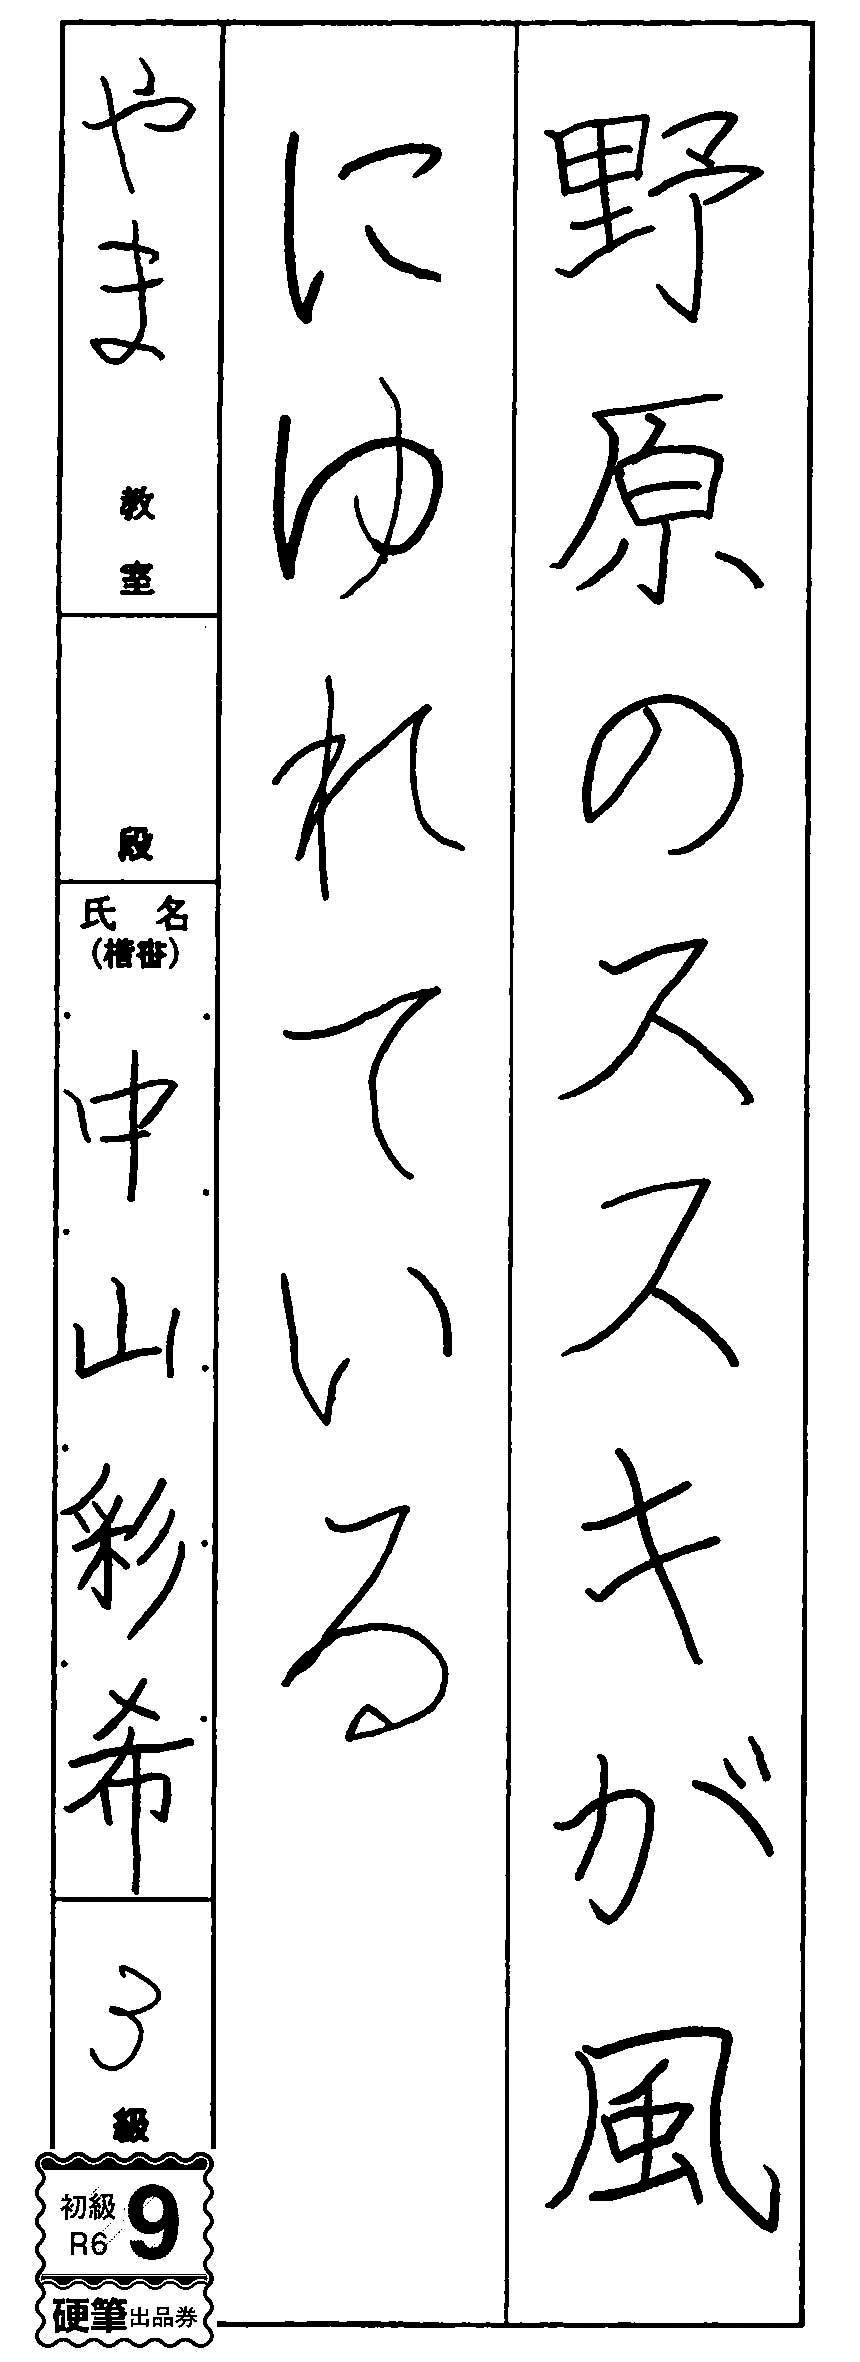 野原のススキが風
にゆれている
やま教室
段
氏名
(楷書)
中山彩希
3級
初級
R6
9
硬筆出品券